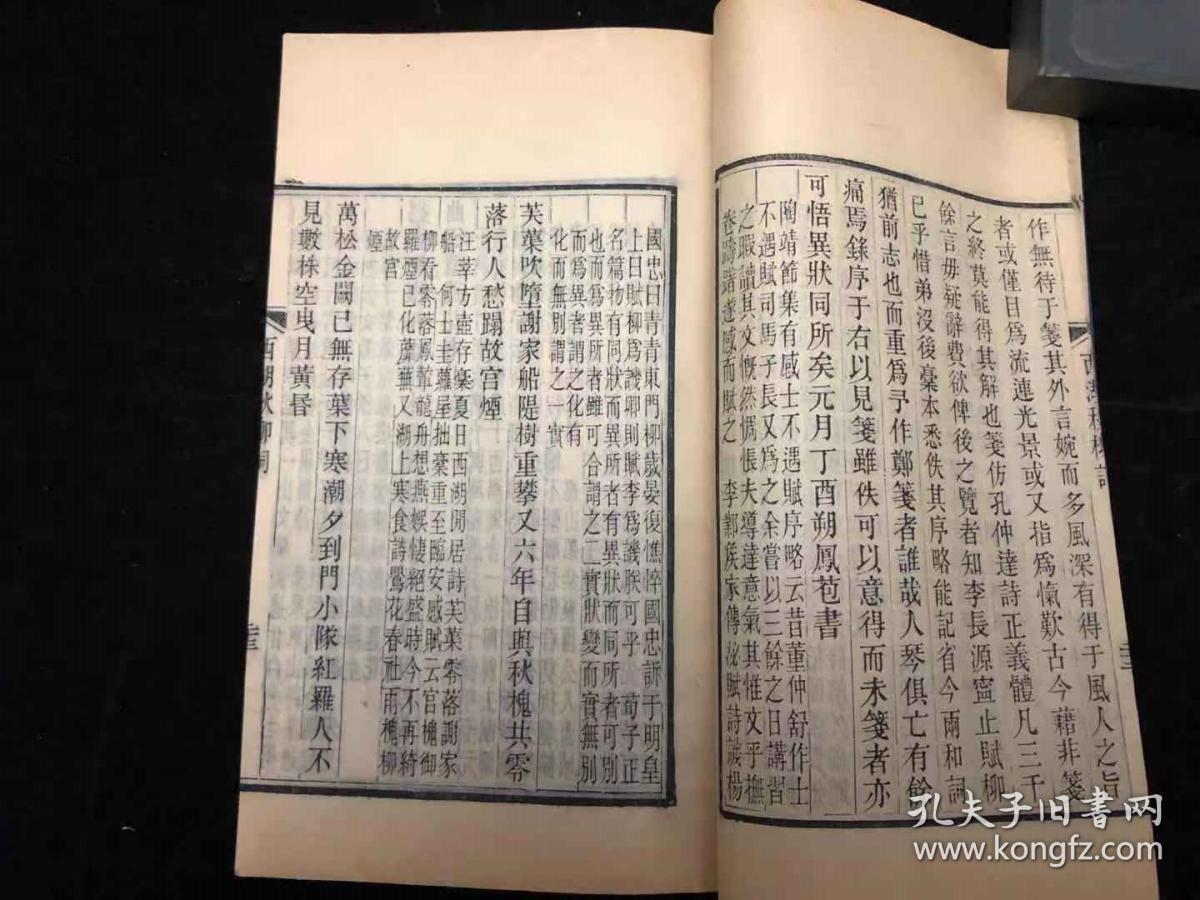 作無待于箋其外言婉而多風深有得于風人之旨
者或僅目爲流連光景或又指爲愾歎古今藉非箋
之終莫能得其解也箋仿孔仲達詩正義體凡三千
餘言毋疑辭費欲俾後之覽者知李長源寧止賦柳
已乎惜弟沒後毫本悉佚其序略能記省今兩和詞
猶前志也而重爲予作鄭箋者誰哉人琴俱亡有餘
痛焉錄序于右以見箋雖佚可以意得而未箋者亦
可悟異狀同所矣元月丁酉朔鳳苞書
陶靖節集有感士不遇賦序略云昔董仲舒作士
不遇賦司馬子長又爲之余嘗以三餘之日講習
之暇讀其文慨然惆悵夫導達意氣其惟文乎撫
卷躊躇遂感而賦之 李鄴矦家傳祕賦詩譏楊
國忠曰青青東門柳歲晏復憔悴國忠訴于明皇
上曰賦柳爲譏卿則賦李爲譏朕可乎 荀子正
名篇物有同狀而異所者有異狀而同所者可別
也而爲異所者雖可合謂之二實狀變而實無別
而爲異者謂之化有
化而無別謂之一實
芙蕖吹墮謝家船隄樹重攀又六年自與秋槐共零
落行人愁蹋故宮煙
汪莘方壺存稾夏日西湖閒居詩芙蕖零落謝家
船 何士圭蘿屋拙稾重至臨安感賦云官槐御
柳看零落鳳輦龍舟想燕娛悽絕盛時今不再綺
羅煙已化蘼蕪又湖上寒食詩鶯花春社雨槐柳
故宮
煙
萬松金闕已無存葉下寒潮夕到門小隊紅羅人不
見數株空曳月黃昏
西湖秋柳詞
孔夫子旧書网
www.kongfz.com